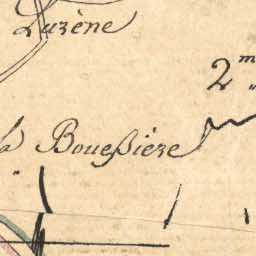 Luzène
2.m
la Boueßière